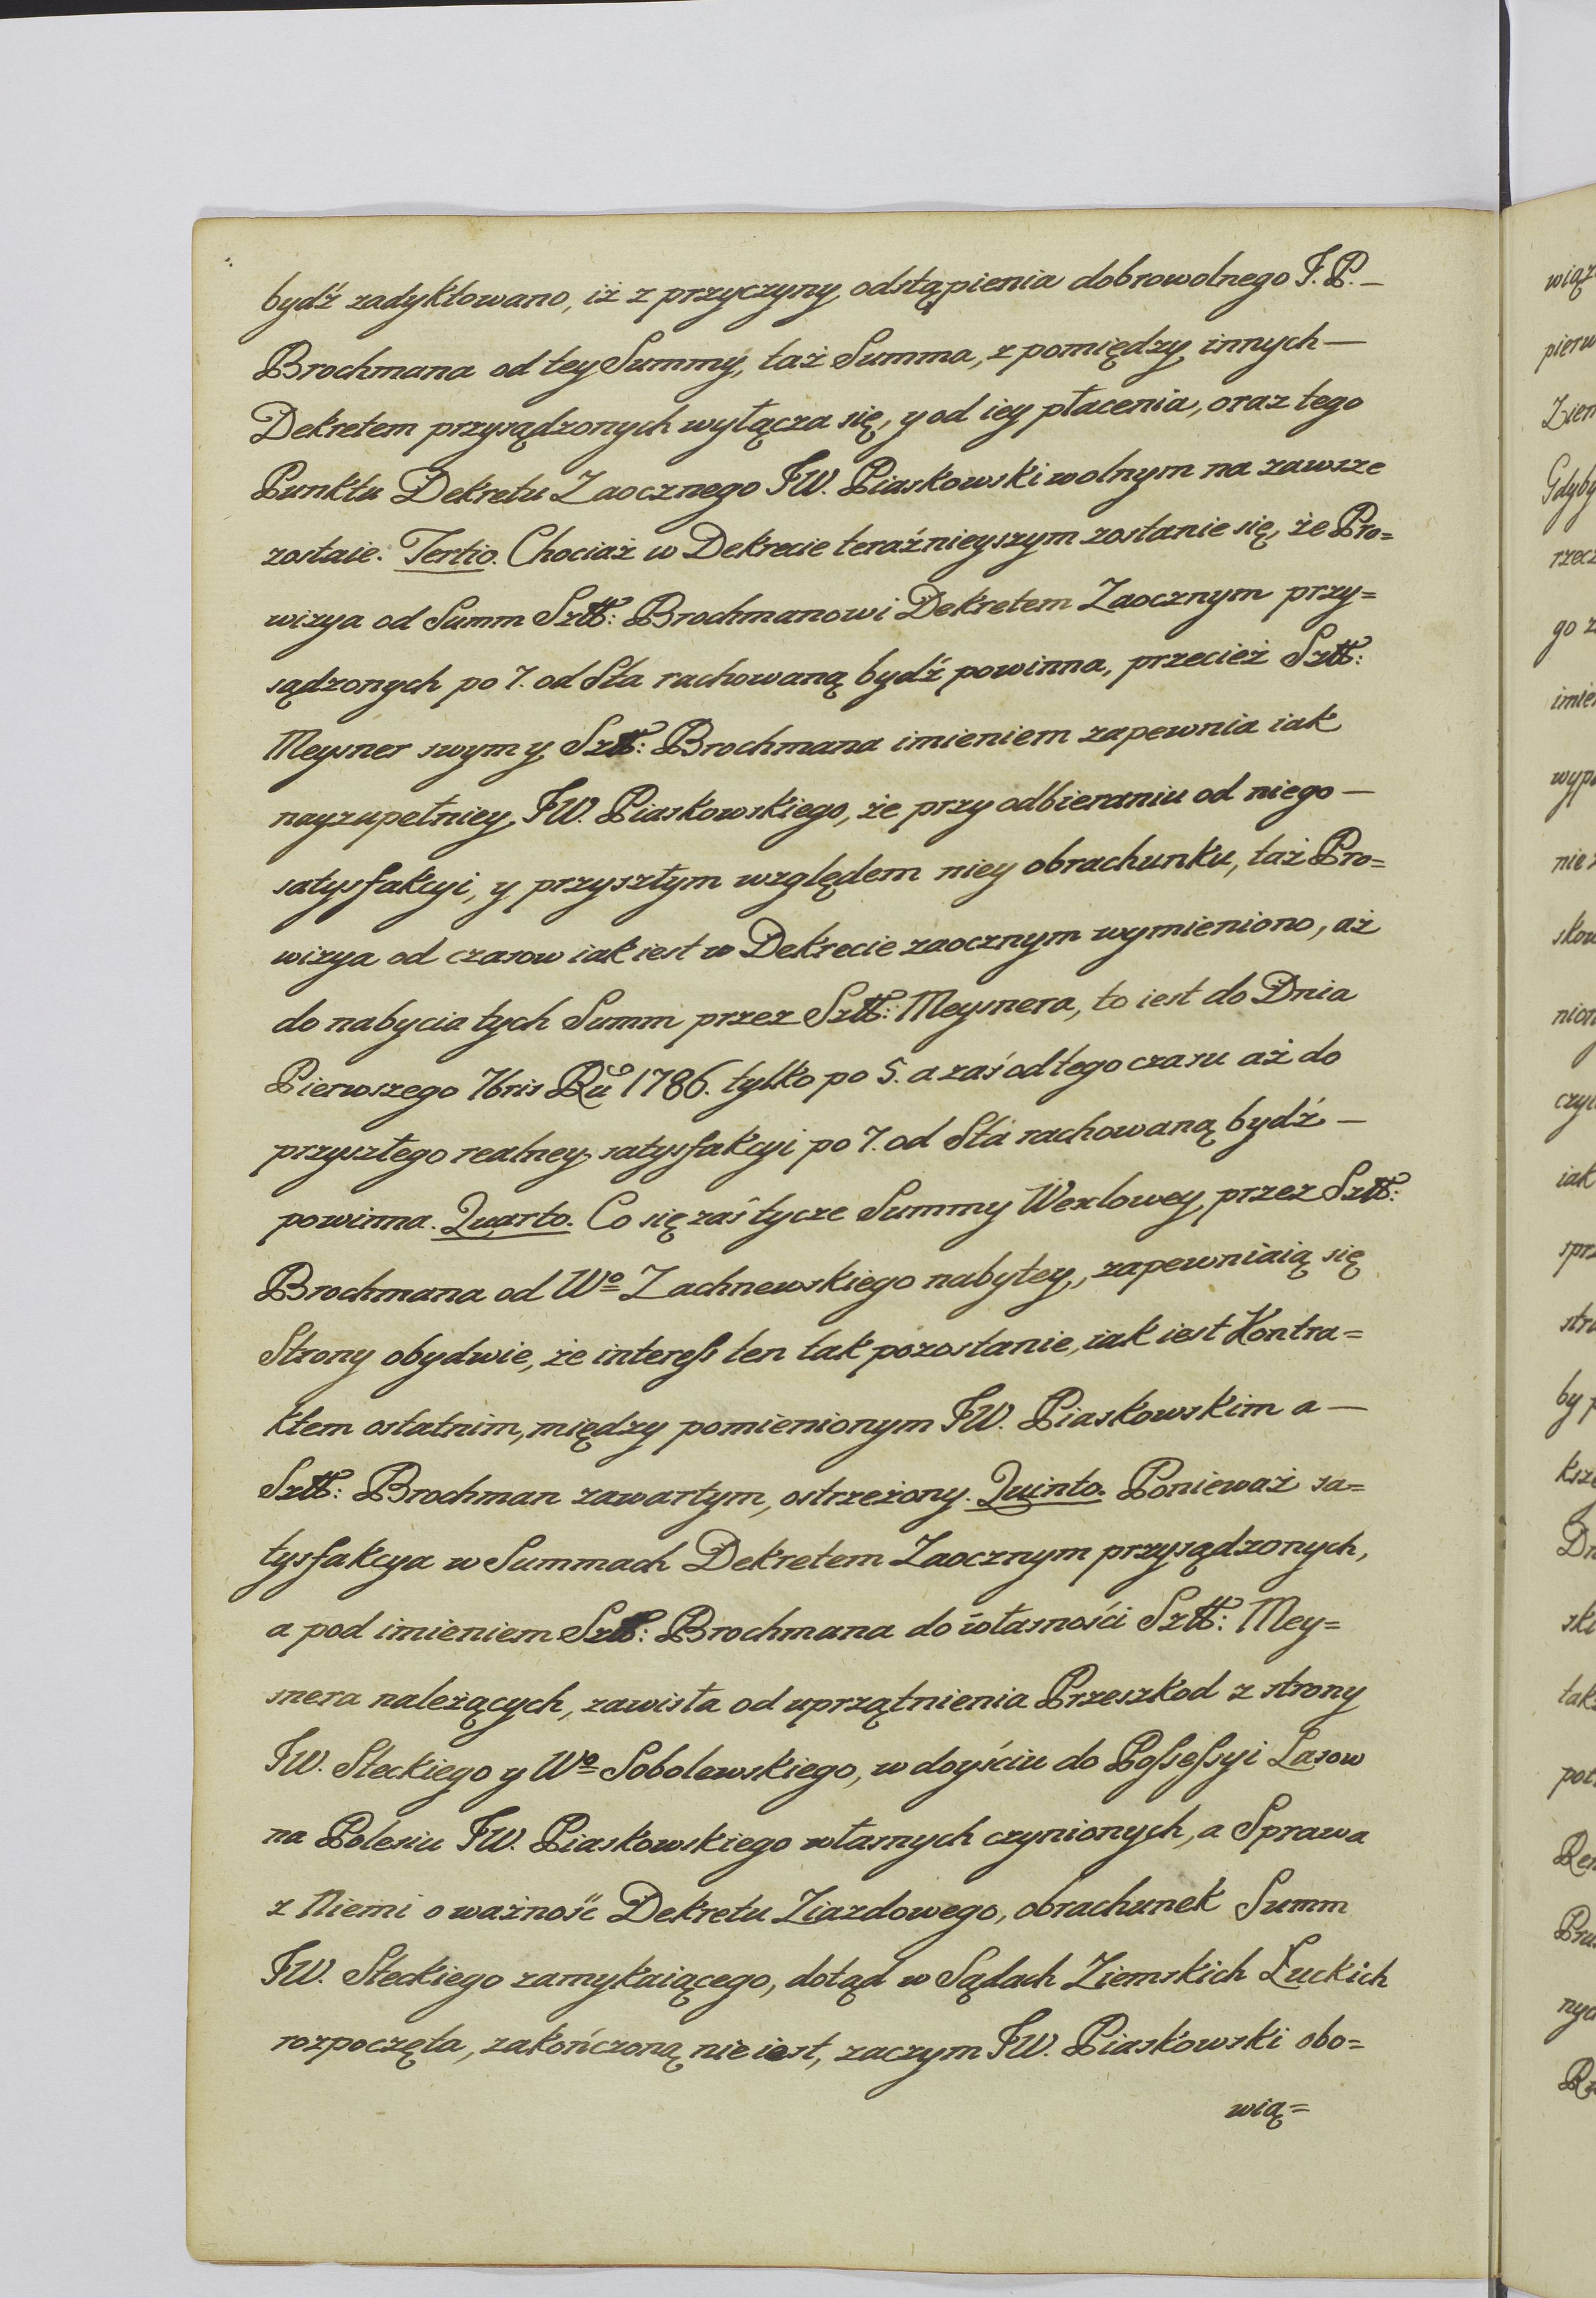 bydź zadyktowano, iż z przyczyny odstąpienia dobrowolnego J. P. —
Brochmana od tey Summy, taż Summa, z pomiędzy innych —
Dekretem przysądzonych wyłącza się, y od iey płacenia, oraz tego
Punktu Dekretu Zaocznego JW. Piaskowski wolnym na zawsze
zostaie. Tertio. Chociaż w Dekrecie teraźnieyszym zostanie się, że Pro=
wizya od Summ Sztt: Brochmanowi Dekretem Zaocznym przy=
sądzonych po 7. od Sta rachowaną bydź powinna, przecież Sztt:
Meysner swym y Sztt: Brochmana imieniem zapewnia iak
nayzupełniey JW. Piaskowskiego, że przy odbieraniu od niego —
satysfakcyi, y przyszłym względem niey obrachunku, taż Pro=
wizya od czasow iak iest w Dekrecie zaocznym wymieniono, aż
do nabycia tych Summ przez Sztt: Meysnera, to iest do Dnia
Pierwszego 7bris Ru 1786. tylko po 5. a zaś od tego czasu aż do
przyszłego realney satysfakcyi po 7. od Sta rachowaną bydź —
powinna. Quarto. Co się zaś tycze Summy Wexlowey przez Sztt:
Brochmana od Wo Zachnewskiego nabytey, zapewniaią się
Strony obydwie, że interess ten tak pozostanie, iak iest Kontra=
ktem ostatnim, między pomienionym JW. Piaskowskim a —
Sztt: Brochman zawartym, ostrzeżony. Quinto. Ponieważ sa=
tysfakcya w Summach Dekretem Zaocznym przysądzonych,
a pod imieniem Sztt: Brochmana do własności Sztt: Mey=
snera należących, zawisła od uprzątnienia Przeszkod z strony
JW. Steckiego y Wo Sobolewskiego, w doyściu do Possessyi Lasow
na Polesiu JW. Piaskowskiego własnych czynionych, a Sprawa
z Niemi o ważność Dekretu Ziazdowego, obrachunek Summ
JW. Steckiego zamykaiącego, dotąd w Sądach Ziemskich Łuckich
rozpoczęta, zakończoną nie iest, zaczym JW. Piaskowski obo=
wią=